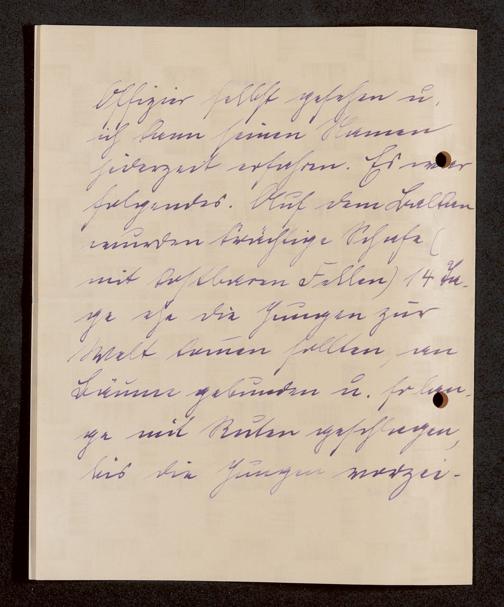 Offizier selbst gesehen u.
ich kann seinen Namen
jederzeit erfahren. Es war
folgendes. Auf dem Balkan
wurden trächtige Schafe (
mit kostbaren Fellen) 14 Ta-
ge ehe die Jungen zur
Welt kommen sollten, an
Bäume gebunden u. so lan-
ge mit Ruten geschlagen,
bis die Jungen vorzei-